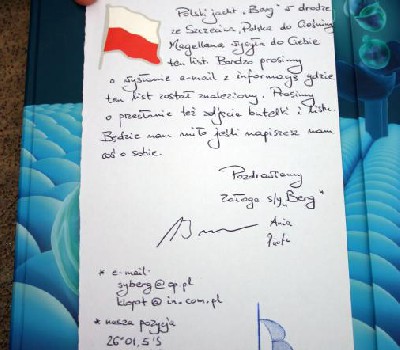 Polski jacht "Berg" w drodze
ze Szczecina, Polska do Cieśniny
Magellana wysyła do Ciebie
ten list. Bardzo prosimy
o wysłanie e-mail z informacją gdzie
ten list został znaleziony. Prosimy
o przesłanie też zdjęcie butelki i listu.
Będzie nam miło jeśli napiszesz nam
coś o sobie.
Pozdrawiamy
załoga s/y "Berg"
Ania
* e-mail:
syberg@op.pl
klopot@in.com.pl
* nasza pozycja
26°01,5'S